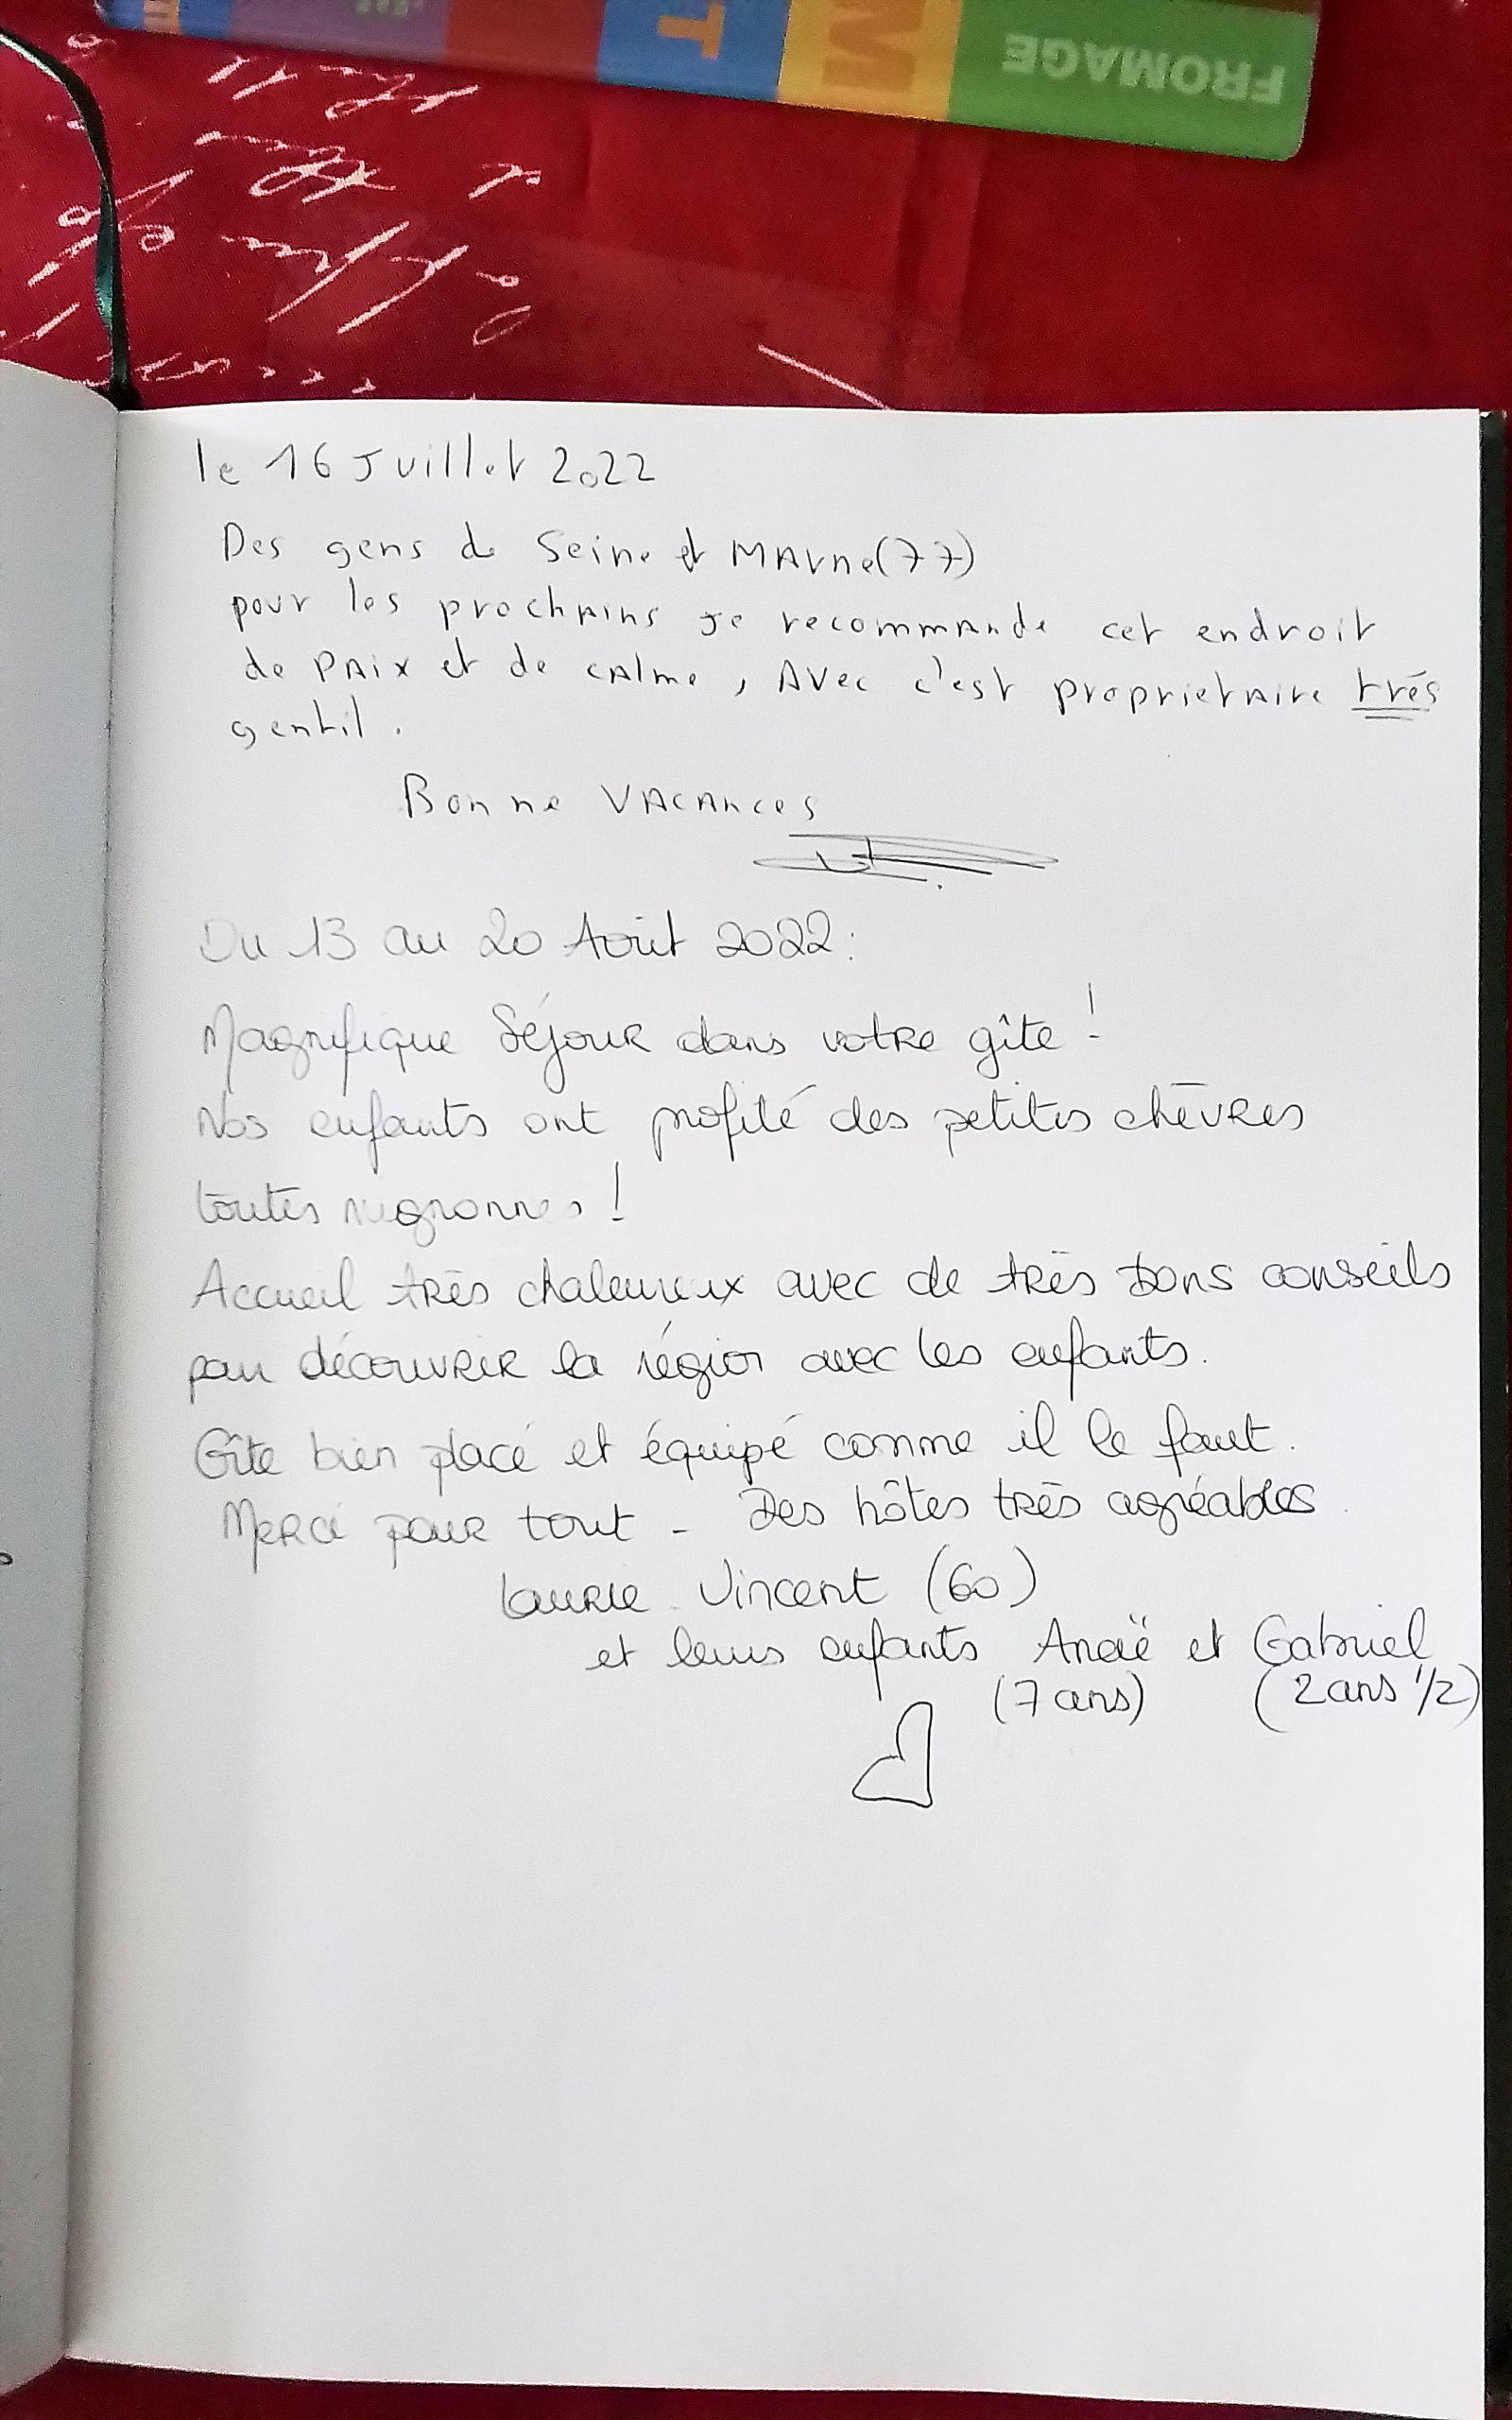 FROMAGE
M
T
le 16 Juillet 2022
Des gens de Seine et MArne (77)
pour les prochAins Je recommAnde cet endroit
de PAix et de cAlme, AVec c'est proprietAire trés
gentil.
Bonne VACAnces
Du 13 au 20 Août 2022 :
Magnifique Séjour dans votre gîte !
Nos enfants ont profité des petites chèvres
toutes mignonnes !
Accueil très chaleureux avec de très bons conseils
pour découvrir la région avec les enfants.
Gîte bien placé et équipé comme il le faut.
Merci pour tout - Des hôtes très agréables.
Laurie Vincent (60)
et leurs enfants Anaë et Gabriel
(7 ans) (2 ans 1/2)